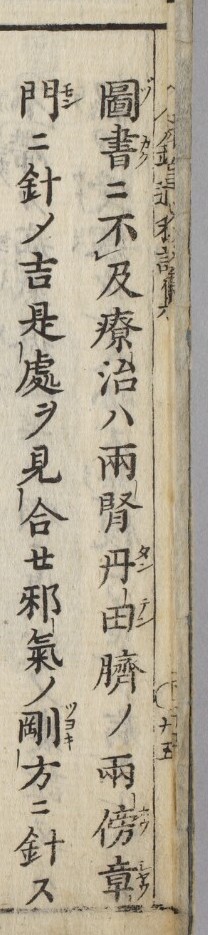 圖書ニ不及療治ハ兩腎丹田臍ノ兩傍章
門ニ針ノ吉是處ヲ見合セ邪氣ノ剛方ニ針ス
十五